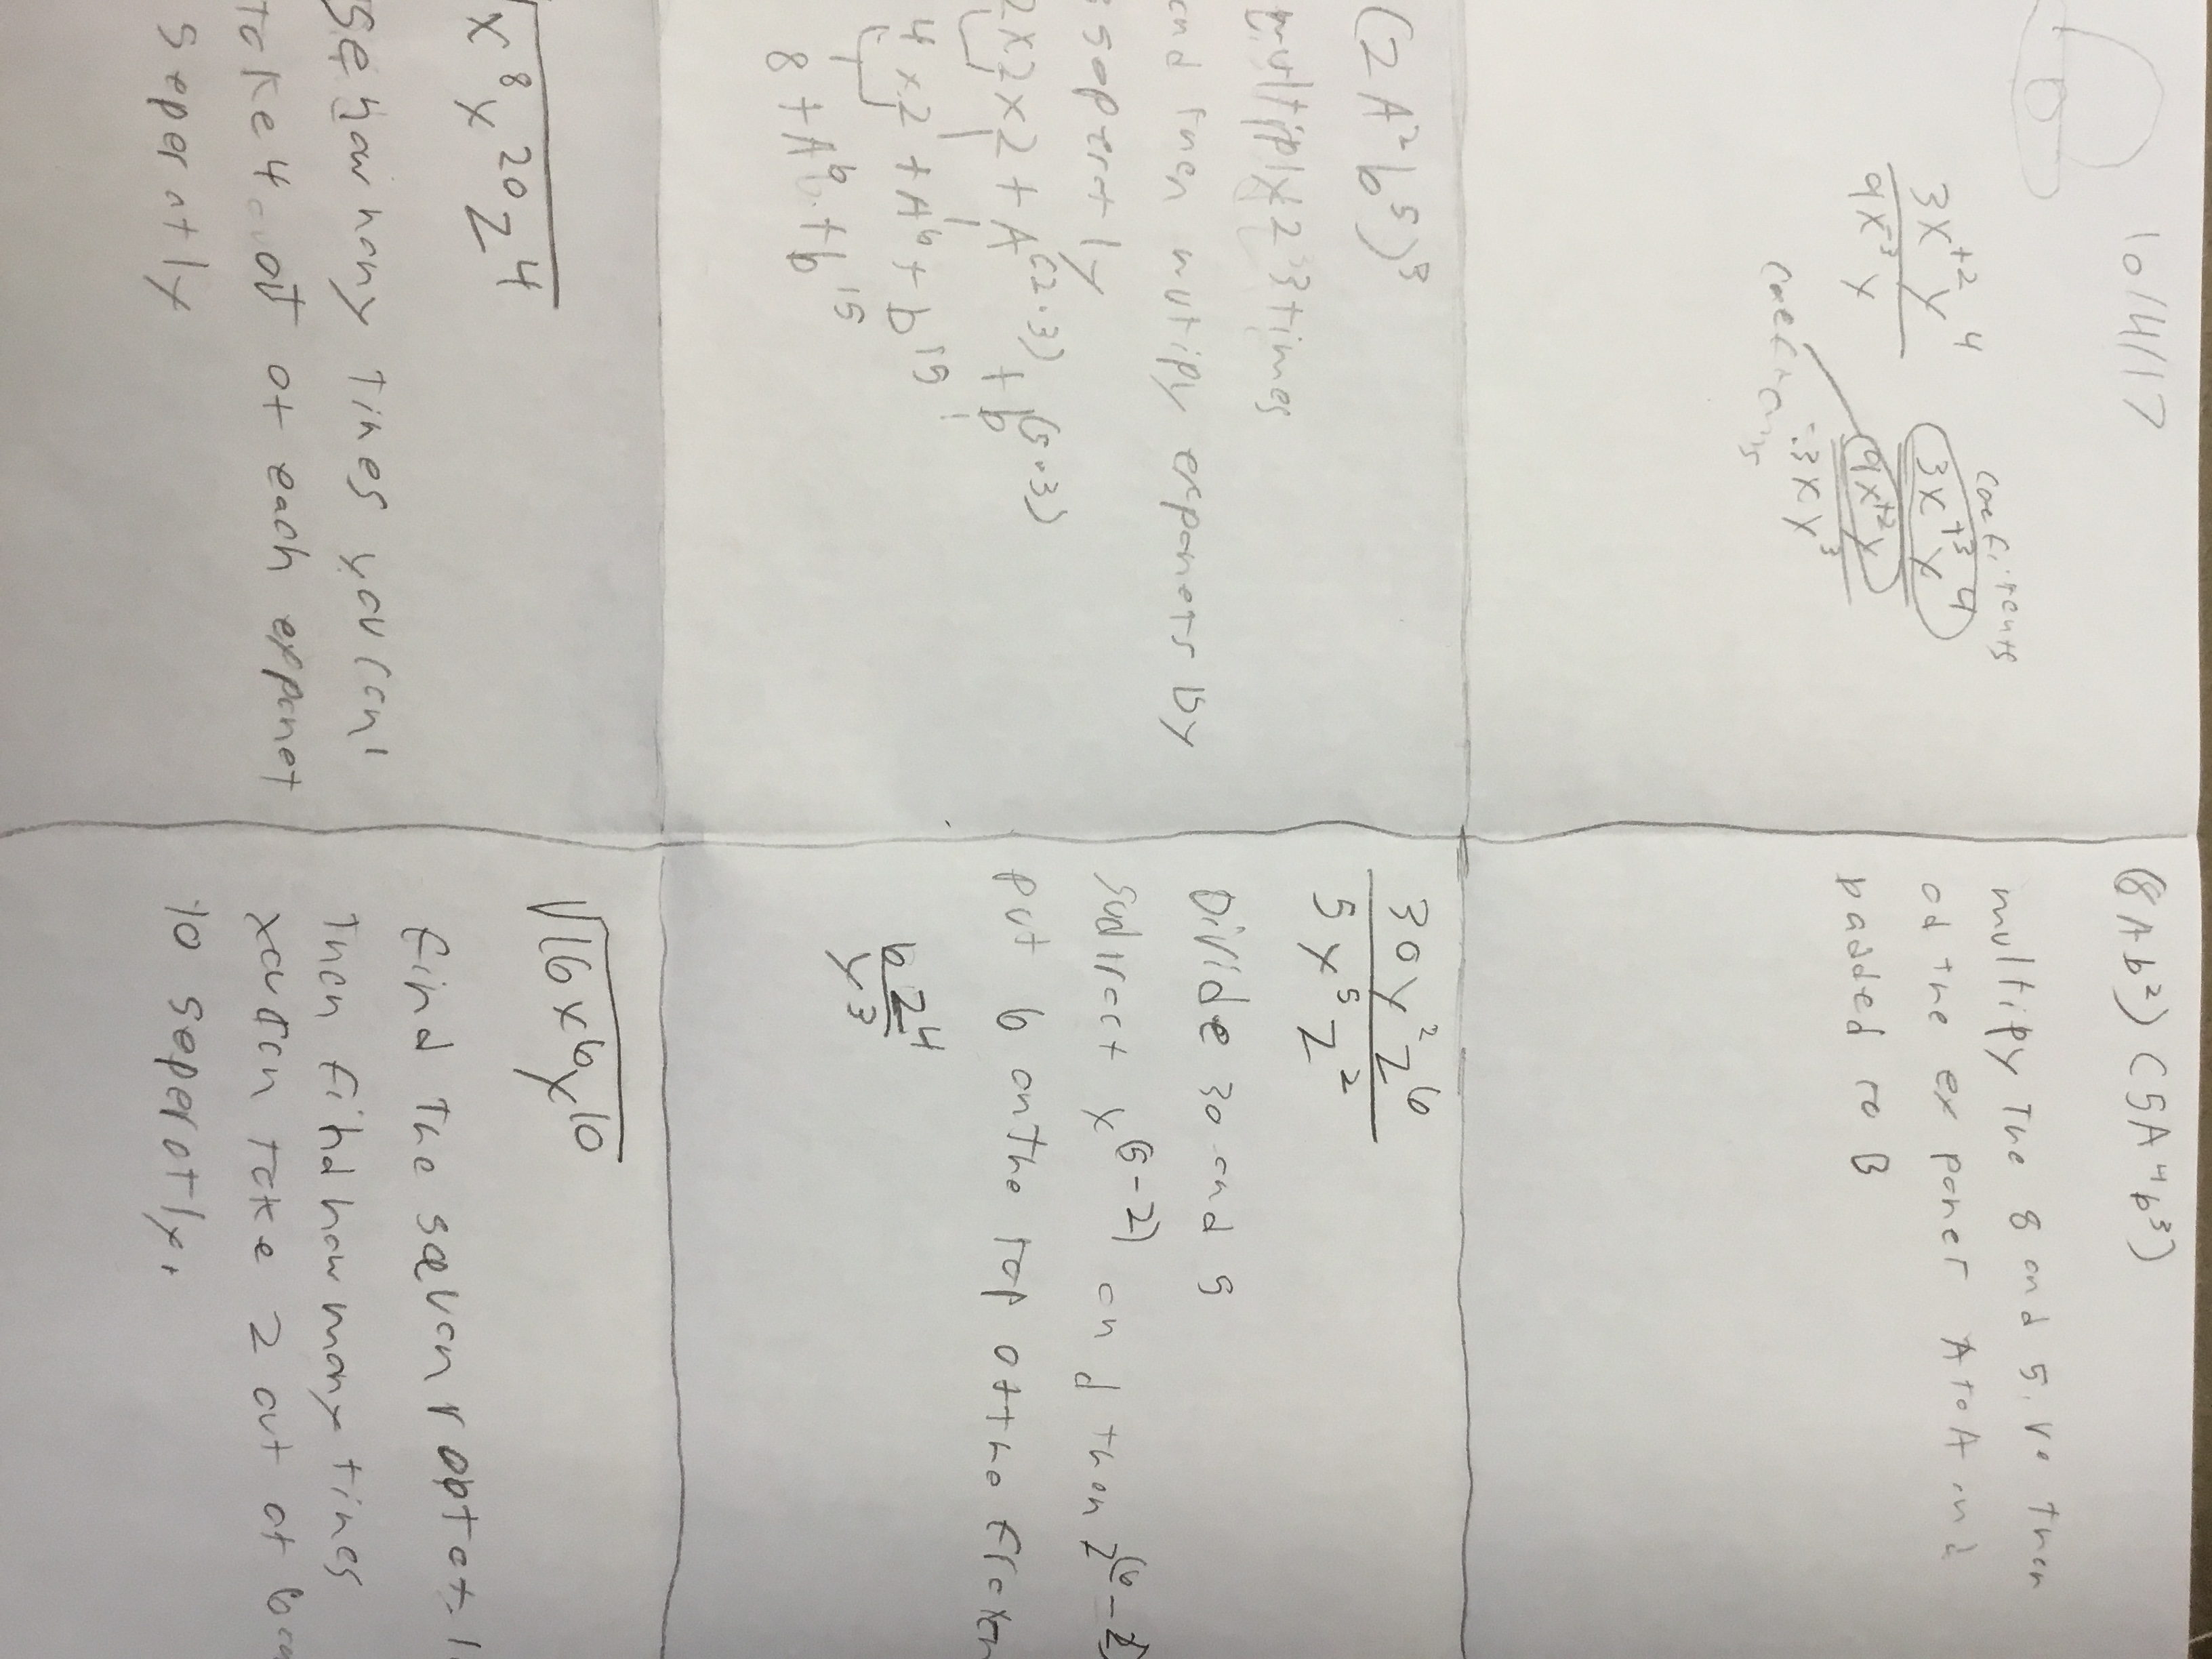 10/4/17
3x⁺²y⁴
9x⁻³y
3x⁺³y⁴
9x⁺²y
.3xy³
(8Ab²)(5A⁴b³)
multipy the 8 and 5. Ve then
od the exponet A to A and
badded to B
(2A²b⁵)³
multiply 2 3 times
and then mutipy exponets by
3 soperatly
2x2x2+A⁽²·³⁾+b⁽⁵·³⁾
4x2+A⁶+b¹⁵
8+A⁶+b¹⁵
30y²z⁶
5y⁵z²
Divide 30 and 5
Subtrcct y⁽⁵⁻²⁾ and then z⁽⁶⁻²⁾
put 6 on the top of the frcxten
6z⁴
y³
√x⁸y²⁰z⁴
Se how many times you can
take 4 out of each exponet
seperatly
√16x⁶y¹⁰
find the sqeuan root of 1
Then find how many times
you can take 2 out of
10 seperatly.